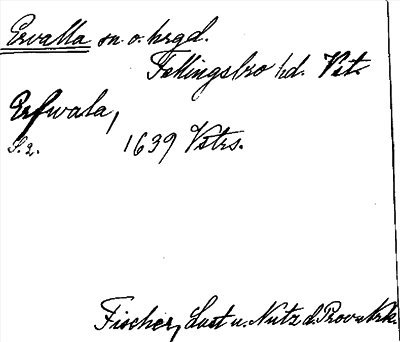 Ervalla sn. o. hrgd.
Fellingsbro hd. Vst.
Erfwala,
S. 2. 1639 Vstrs.
Fischer, Lust u. Nutz d. Prov.